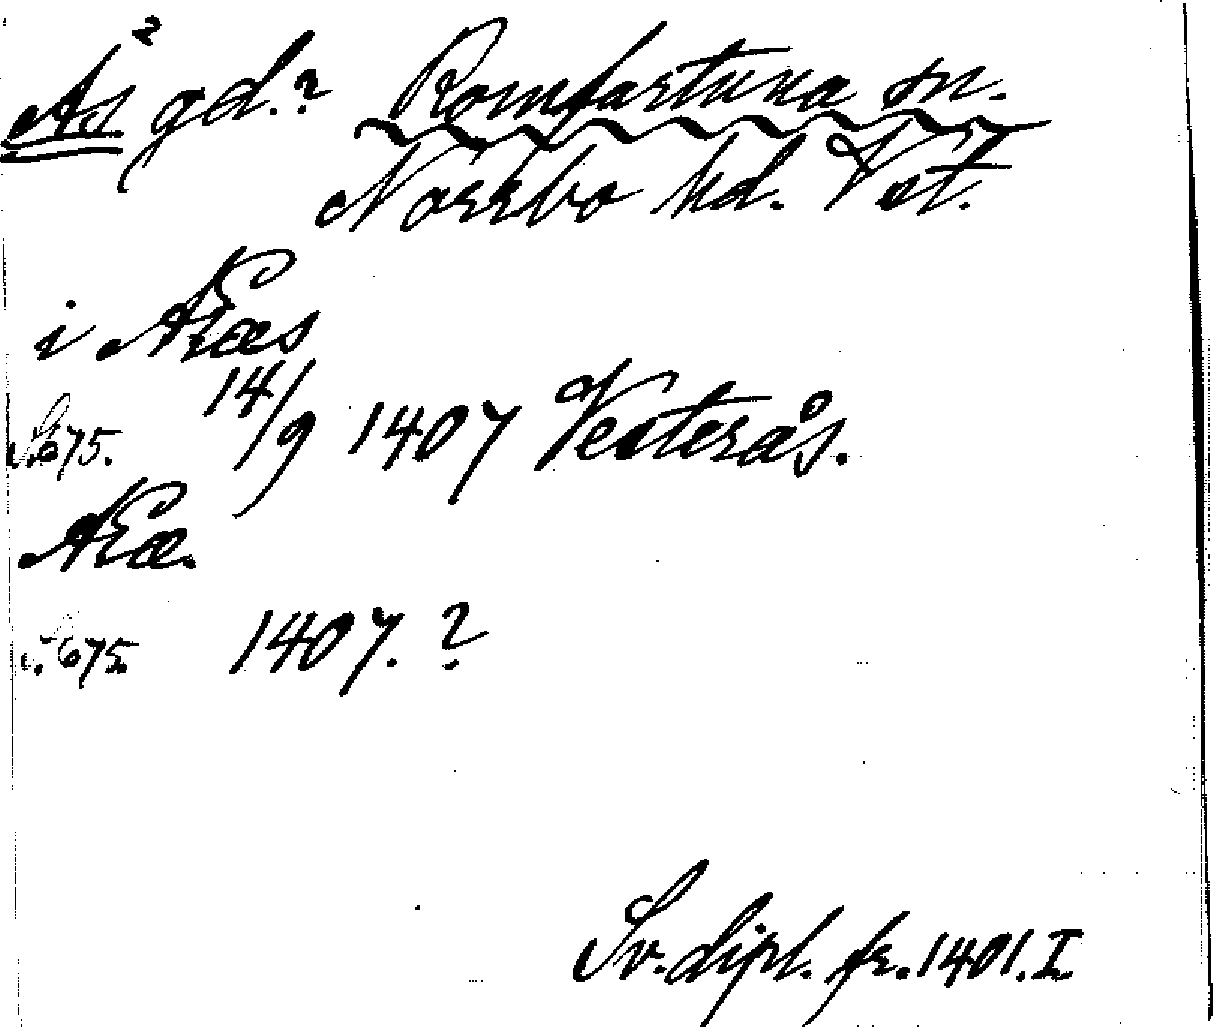 As² gd.? Romfartuna sn.
Norrbo hd. Vst.
i
S. 675. 14/9 1407 Vesterås.
S. 675 1407. ?
Sv. dipl. fr. 1401. I